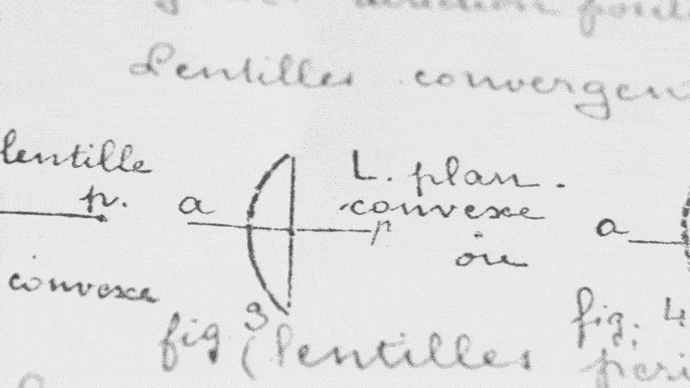 Lentilles convergen
lentille
p.
a
L. plan.
convexe
p
a
ou
convexe
fig 3
fig. 4
(lentilles